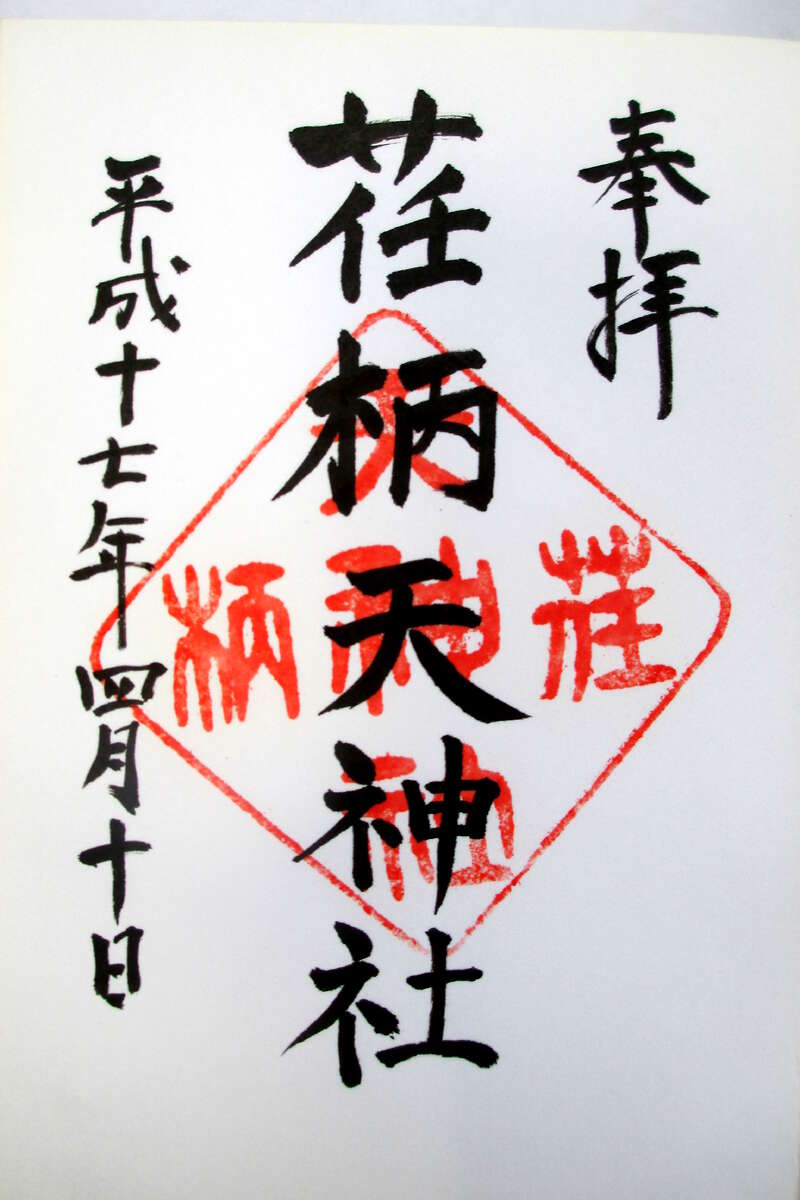 奉拝
荏柄天神社
平成十七年四月十日
荏
柄
天
神
社